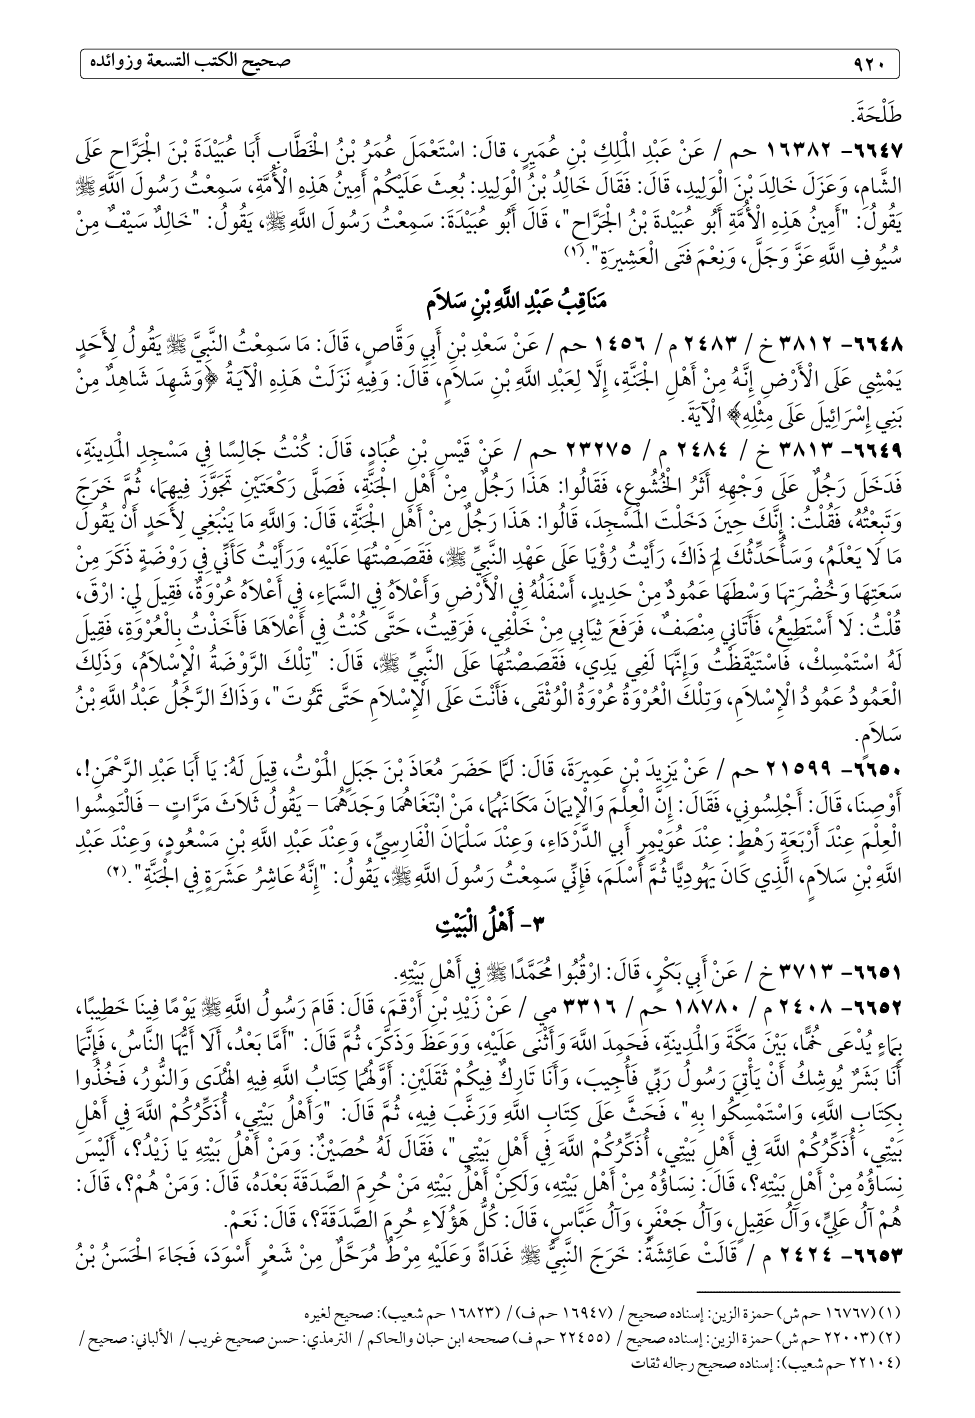 ٩٢٠ صحيح الكتب التسعة وزوائده
طَلْحَةَ.
٦٦٤٧- ١٦٣٨٢ حم / عَنْ عَبْدِ الْمَلِكِ بْنِ عُمَيرٍ، قالَ: اسْتَعْمَلَ عُمَرُ بْنُ الخَطَّابِ أَبَا عُبَيْدَةَ بْنَ الْجَرَّاحِ عَلَى
الشَّامِ، وَعَزَلَ خَالِدَ بْنَ الْوَلِيدِ، قَالَ: فَقَالَ خَالِدُ بْنُ الْوَلِيدِ: بُعِثَ عَلَيْكُمْ أَمِينُ هَذِهِ الْأُمَّةِ، سَمِعْتُ رَسُولَ اللَّهِ ﷺ
يَقُولُ: "أَمِينُ هَذِهِ الْأُمَّةِ أَبُو عُبَيْدَةَ بْنُ الْجَرَّاحِ"، قَالَ أَبُو عُبَيْدَةَ: سَمِعْتُ رَسُولَ اللهِ ﷺ، يَقُولُ: "خَالِدٌ سَيْفٌ مِنْ
سُيُوفِ اللهِ عَزَّ وَجَلَّ، وَنِعْمَ فَتَى الْعَشِيرَةِ".(١)
مَنَاقِبُ عَبْدِ اللَّهِ بْنِ سَلاَم
٦٦٤٨- ٣٨١٢ خ / ٢٤٨٣ م / ١٤٥٦ حم / عَنْ سَعْدِ بْنِ أَبِي وَقَّاصٍ، قَالَ: مَا سَمِعْتُ النَّبِيَّ ﷺ يَقُولُ لِأَحَدٍ
يَمْشِي عَلَى الْأَرْضِ إِنَّهُ مِنْ أَهْلِ الجَنَّةِ، إِلَّا لِعَبْدِ اللَّهِ بْنِ سَلاَمٍ، قَالَ: وَفِيهِ نَزَلَتْ هَذِهِ الْآيَةُ ﴿وَشَهِدَ شَاهِدٌ مِنْ
بَنِي إِسْرَائِيلَ عَلَى مِثْلِهِ﴾ الْآيَةَ.
٦٦٤٩- ٣٨١٣ خ / ٢٤٨٤ م / ٢٣٢٧٥ حم / عَنْ قَيْسِ بْنِ عُبَادٍ، قَالَ: كُنْتُ جَالِسًا فِي مَسْجِدِ الْمَدِينَةِ،
فَدَخَلَ رَجُلٌ عَلَى وَجْهِهِ أَثَرُ الْخُشُوعِ، فَقَالُوا: هَذَا رَجُلٌ مِنْ أَهْلِ الجَنَّةِ، فَصَلَّى رَكْعَتَيْنِ تَجَوَّزَ فِيهِمَا، ثُمَّ خَرَجَ
وَتَبِعْتُهُ، فَقُلْتُ: إِنَّكَ حِينَ دَخَلْتَ الْمَسْجِدَ، قَالُوا: هَذَا رَجُلٌ مِنْ أَهْلِ الجَنَّةِ، قَالَ: وَاللَّهِ مَا يَنْبَغِي لِأَحَدٍ أَنْ يَقُولَ
مَا لَا يَعْلَمُ، وَسَأُحَدِّثُكَ لِمَ ذَاكَ، رَأَيْتُ رُؤْيَا عَلَى عَهْدِ النَّبِيِّ ﷺ، فَقَصَصْتُهَا عَلَيْهِ، وَرَأَيْتُ كَأَنِّي فِي رَوْضَةٍ ذَكَرَ مِنْ
سَعَتِهَا وَخُضْرَتِهَا وَسْطَهَا عَمُودٌ مِنْ حَدِيدٍ، أَسْفَلُهُ فِي الْأَرْضِ وَأَعْلاَهُ فِي السَّمَاءِ، فِي أَعْلاَهُ عُرْوَةٌ، فَقِيلَ لِي: ارْقَ،
قُلْتُ: لَا أَسْتَطِيعُ، فَأَتَانِي مِنْصَفٌ، فَرَفَعَ ثِيَابِي مِنْ خَلْفِي، فَرَقِيتُ، حَتَّى كُنْتُ فِي أَعْلاَهَا فَأَخَذْتُ بِالْعُرْوَةِ، فَقِيلَ
لَهُ اسْتَمْسِكْ، فَاسْتَيْقَظْتُ وَإِنَّهَا لَفِي يَدِي، فَقَصَصْتُهَا عَلَى النَّبِيِّ ﷺ، قَالَ: "تِلْكَ الرَّوْضَةُ الْإِسْلاَمُ، وَذَلِكَ
العَمُودُ عَمُودُ الْإِسْلاَمِ، وَتِلْكَ العُرْوَةُ عُرْوَةُ الْوُثْقَى، فَأَنْتَ عَلَى الْإِسْلاَمِ حَتَّى تَمُوتَ"، وَذَاكَ الرَّجُلُ عَبْدُ اللَّهِ بْنُ
سَلاَمٍ.
٦٦٥٠- ٢١٥٩٩ حم / عَنْ يَزِيدَ بْنِ عَمِيرَةَ، قَالَ: لَمَّا حَضَرَ مُعَاذَ بْنَ جَبَلٍ الْمَوْتُ، قِيلَ لَهُ: يَا أَبَا عَبْدِ الرَّحْمَنِ!،
أَوْصِنَا، قَالَ: أَجْلِسُونِي، فَقَالَ: إِنَّ الْعِلْمَ وَالْإِيمَانَ مَكَانَهُمَا، مَنْ ابْتَغَاهُمَا وَجَدَهُمَا – يَقُولُ ثَلَاثَ مَرَّاتٍ – فَالْتَمِسُوا
الْعِلْمَ عِنْدَ أَرْبَعَةِ رَهْطٍ: عِنْدَ عُوَيْمِرٍ أَبِي الدَّرْدَاءِ، وَعِنْدَ سَلْمَانَ الْفَارِسِيِّ، وَعِنْدَ عَبْدِ اللهِ بْنِ مَسْعُودٍ، وَعِنْدَ عَبْدِ
اللهِ بْنِ سَلَامٍ، الَّذِي كَانَ يَهُودِيًّا ثُمَّ أَسْلَمَ، فَإِنِّي سَمِعْتُ رَسُولَ اللهِ ﷺ، يَقُولُ: "إِنَّهُ عَاشِرُ عَشَرَةٍ فِي الْجَنَّةِ".(٢)
٣- أَهْلُ الْبَيْتِ
٦٦٥١- ٣٧١٣ خ / عَنْ أَبِي بَكْرٍ، قَالَ: ارْقُبُوا مُحَمَّدًا ﷺ فِي أَهْلِ بَيْتِهِ.
٦٦٥٢- ٢٤٠٨ م / ١٨٧٨٠ حم / ٣٣١٦ مي / عَنْ زَيْدِ بْنِ أَرْقَمَ، قَالَ: قَامَ رَسُولُ اللَّهِ ﷺ يَوْمًا فِينَا خَطِيبًا،
بِمَاءٍ يُدْعَى خُمًّا، بَيْنَ مَكَّةَ وَالْمَدِينَةِ، فَحَمِدَ اللَّهَ وَأَثْنَى عَلَيْهِ، وَوَعَظَ وَذَكَّرَ، ثُمَّ قَالَ: "أَمَّا بَعْدُ، أَلَا أَيُّهَا النَّاسُ، فَإِنَّمَا
أَنَا بَشَرٌ يُوشِكُ أَنْ يَأْتِيَ رَسُولُ رَبِّي فَأُجِيبَ، وَأَنَا تَارِكٌ فِيكُمْ ثَقَلَيْنِ: أَوَّلُهُمَا كِتَابُ اللَّهِ فِيهِ الْهُدَى وَالنُّورُ، فَخُذُوا
بِكِتَابِ اللَّهِ، وَاسْتَمْسِكُوا بِهِ"، فَحَثَّ عَلَى كِتَابِ اللَّهِ وَرَغَّبَ فِيهِ، ثُمَّ قَالَ: "وَأَهْلُ بَيْتِي، أُذَكِّرُكُمْ اللَّهَ فِي أَهْلِ
بَيْتِي، أُذَكِّرُكُمْ اللَّهَ فِي أَهْلِ بَيْتِي، أُذَكِّرُكُمْ اللَّهَ فِي أَهْلِ بَيْتِي"، فَقَالَ لَهُ حُصَيْنٌ: وَمَنْ أَهْلُ بَيْتِهِ يَا زَيْدُ؟، أَلَيْسَ
نِسَاؤُهُ مِنْ أَهْلِ بَيْتِهِ؟، قَالَ: نِسَاؤُهُ مِنْ أَهْلِ بَيْتِهِ، وَلَكِنْ أَهْلُ بَيْتِهِ مَنْ حُرِمَ الصَّدَقَةَ بَعْدَهُ، قَالَ: وَمَنْ هُمْ؟، قَالَ:
هُمْ آلُ عَلِيٍّ، وَآلُ عَقِيلٍ، وَآلُ جَعْفَرٍ، وَآلُ عَبَّاسٍ، قَالَ: كُلُّ هَؤُلَاءِ حُرِمَ الصَّدَقَةَ؟، قَالَ: نَعَمْ.
٦٦٥٣- ٢٤٢٤ م / قَالَتْ عَائِشَةُ: خَرَجَ النَّبِيُّ ﷺ غَدَاةً وَعَلَيْهِ مِرْطٌ مُرَحَّلٌ مِنْ شَعْرٍ أَسْوَدَ، فَجَاءَ الْحَسَنُ بْنُ
(١) (١٦٧٦٧ حم ش) حمزة الزين: إسناده صحيح / (١٦٩٤٧ حم ف)/ (١٦٨٢٣ حم شعيب): صحيح لغيره
(٢) (٢٢٠٠٣ حم ش) حمزة الزين: إسناده صحيح / (٢٢٤٥٥ حم ف) صححه ابن حبان والحاكم / الترمذي: حسن صحيح غريب / الألباني: صحيح /
(٢٢١٠٤ حم شعيب): إسناده صحيح رجاله ثقات